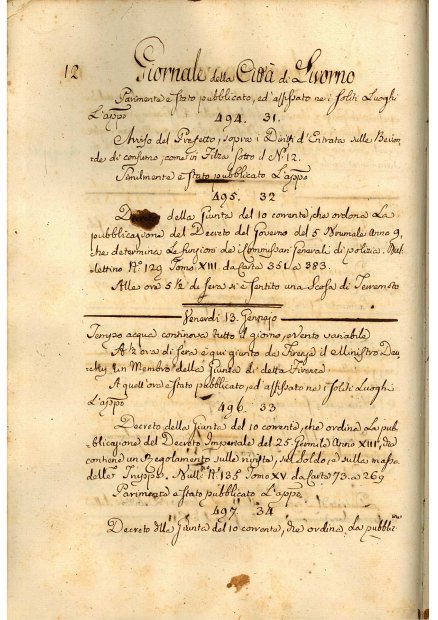 12 Giornale della Città di Livorno
Parimente è stato pubblicato, ed affissato nei soliti Luoghi
L'appo
494. 31.
Avviso del Prefetto, sopra i Diritti d'Entrata sulle Bevan-
de di consumo, come in Filza sotto d. N. 12.
Similmente è stato pubblicato L'appo
495. 32
della Giunta del 10 corrente, che ordona La
pubblicazione del Decreto del Governo del 5 Noumale Anno 9,
che determina Le funzioni de Commissari Generali di polizia. Bul-
lettino No. 129 Tomo XIII. da Carta 351 a 383.
Alle ore 5½ di sera si è sentito una Scossa di Terremoto
Venerdi 13. Gennaio
Tempo acqua continova tutto il giorno, e vento variabile
A ½ ora di sera è qui giunto da Firenze il Ministro Dau-
chy, un Membro della Giunta di detta Firenze
A quell'ora è stato pubblicato, ed affissato nei soliti Luoghi
L'appo
496. 33
Decreto della Giunta del 10 corrente, che ordina La pub-
blicazione del Decreto Imperiale del 25. Germile Anno XIII, che
contiene un Regolamento sulle rivista, sul Soldo, e sulla massa
delle Truppe. Bull. No. 135 Tomo XV da Carta 73. a 269
Parimente è stato pubblicato L'appo
497. 34
Decreto della Giunta del 10 corrente, che ordina La pubbli-